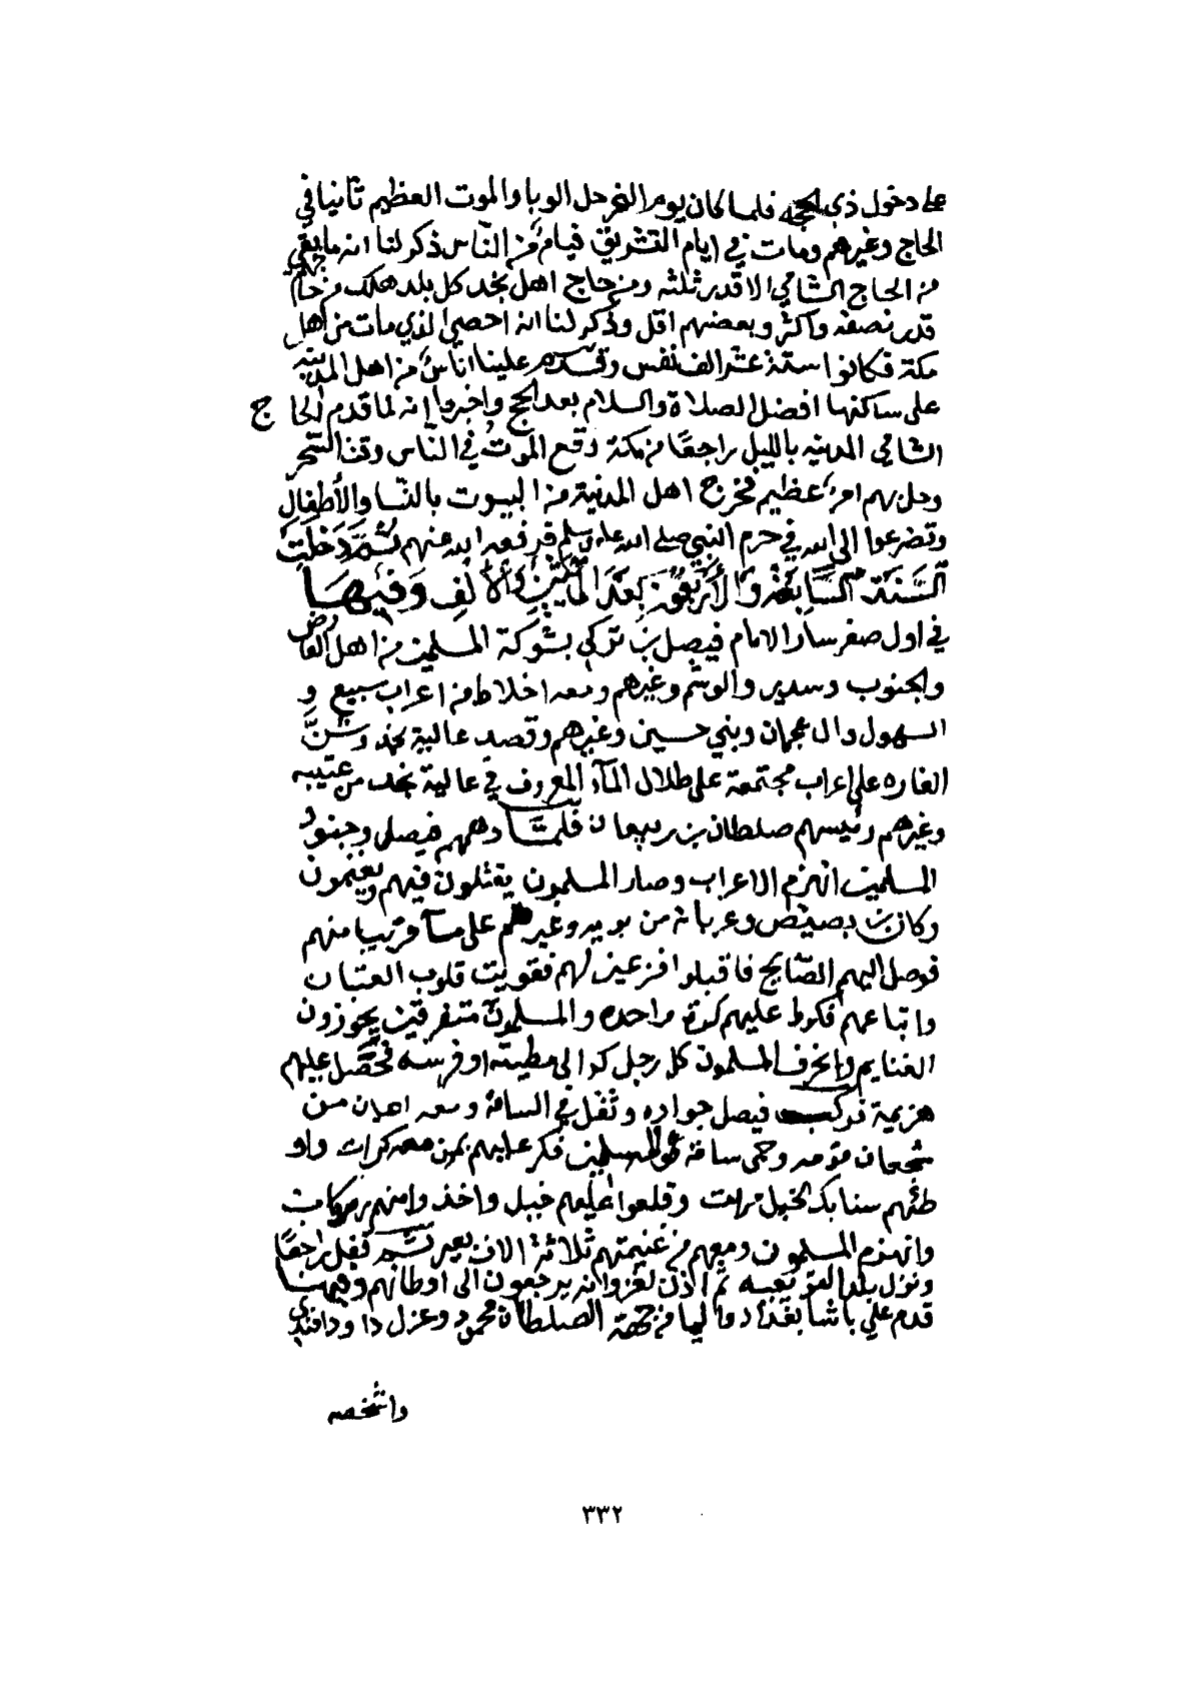 على دخول ذي الحجه فلما كان يوم النحر حل الوبا والموت العظيم ثانيا في
الحاج وغيرهم ومات في ايام التشريق فيام من الناس ذكر لنا انه ما بقي
من الحاج الشامي الا قدر ثلثه ومن حاج اهل نجد كل بلد هلك من حاجهم
قدر نصفه واكثر وبعضهم اقل وذكر لنا انه احصي الذي مات من اهل
مكة فكانوا ستة عشر الف نفس وقدم علينا اناسٌ من اهل المدينه
على ساكنها افضل الصلاة والسلام بعد الحج واخبروا انه لما قدم الحاج
الشامي المدينه بالليل راجعًا من مكة وقع الموتُ في الناس وقت السحر
وحل بهم امرٌ عظيم فخرج اهل المدينة من البيوت بالنسا والأطفال
وتضرعوا الى الله في حرم النبي صلى الله عليه وسلم فرفعه الله عنهم ثُمَّ دَخَلَت
السَّنَة السَّابِعَة وَالأَرْبَعُون بَعْدَ المَأتَين وَالألفِ وَفيهَا
في اول صفر سار الامام فيصل بن تركي بشوكة المسلمين من اهل العارض
والجنوب وسدير والوشم وغيرهم ومعه اخلاط من اعراب سبيع و
السهول وال عجمان وبني حسين وغيرهم وقصد عالية نجد وشنَّ
الغاره على اعراب مجتمعة على طلال المآء المعروف في عالية نجد من عتيبه
وغيرهم رئيسهم صلطان بن ربيعان فلمَّا دهمهم فيصل وجنود
المسلمين انهزم الاعراب وصار المسلمون يقتلون فيهم ويغنمون
وكان بن بصيص وعربانه من بويه وغيرهم على مآ قريبا منهم
فوصل اليهم الصايح فاقبلوا فزعين لهم فقويت قلوب العتبان
واتباعهم فكروا عليهم كرة واحده والمسلمون متفرقين يحوزون
الغنايم وانحرف المسلمون كل رجل كر الى مطيته او فرسه فحصل عليهم
هزيمة فركب فيصل جواده وثقل في الساقة ومعه اعيان من
شجعان قومه وحمى ساقة المسلمين فكر عليهم بمن معه كرات واو
طئهم سنابك الخيل مرات وقلعوا عليهم خيل واخذوا منهم ركاب
وانهزم المسلمون ومعهم من غنيمتهم ثلاثة الاف بعير ثم قفل راجعًا
ونزل بلد القويعيه ثم اذن لغزوانه يرجعون الى اوطانهم وفيها
قدم علي باشا بغداد واليا من جهة الصلطان محمود وعزل داود افندي
واشخصه
٣٣٢